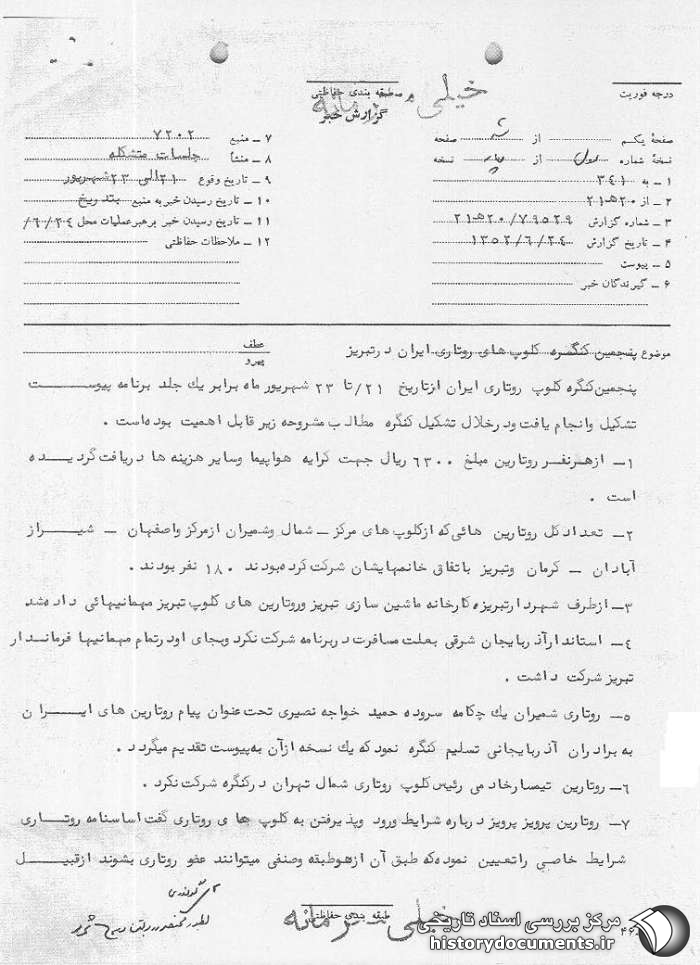 درجه فوریت
طبقه بندی حفاظتی
خیلی محرمانه
گزارش خبر
صفحهٔ یکم از صفحه
نسخهٔ شماره از نسخه
۱ـ به ۳٤۱
۲ـ از ۲۰هـ۲۱
۳ـ شماره گزارش ۲۰/۷۹۵۲۹هـ۲۱
۴ـ تاریخ گزارش ۱۳۵۲/٦/۲٤
۵ـ پیوست
۶ـ گیرندگان خبر
۷ـ منبع ۷۲۰۲
۸ـ منشأ جلسات متشکله
۹ـ تاریخ وقوع ۲۱الی ۲۳شهریور
۱۰ـ تاریخ رسیدن خبر به منبع بتدریج
۱۱ـ تاریخ رسیدن خبر برهبرعملیات محل ٦/۲٤/
۱۲ـ ملاحظات حفاظتی
موضوع پنجمین کنگره کلوپ های روتاری ایران درتبریز
عطف
پیرو
پنجمین کنگره کلوپ روتاری ایران ازتاریخ ۲۱/تا ۲۳ شهریور ماه برابر یك جلد برنامه پیوست
تشکیل وانجام یافت ودرخلال تشکیل کنگره مطالب مشروحه زیر قابل اهمیت بوده‌است .
۱ـ ازهرنفر روتارین مبلغ ٦۳۰۰ ریال جهت کرایه هواپیما وسایر هزینه ها دریافت گردیده
است .
۲ـ تعداد کل روتارین هائی‌که ازکلوپ های مرکز ـ شمال وشمیران ازمرکز واصفهان ـ شیراز
آبادان ـ کرمان وتبریز باتفاق خانمهایشان شرکت کرده‌بودند ۱۸۰ نفر بودند .
۳ـ ازطرف شهردارتبریزه کارخانه ماشین سازی تبریز وروتارین های کلوپ تبریز مهمانیهائی داده‌شد.
٤ـ استاندارآذربایجان شرقی بعلت مسافرت دربرنامه شرکت نکرد وبجای اودرتمام مهمانیها فرماندار
تبریز شرکت داشت .
۵ـ روتاری شمیران یك چکامه سروده حمید خواجه نصیری تحت‌عنوان پیام روتارین های ایران
به برادران آذربایجانی تسلیم کنگره نمودکه یك نسخه ازآن به‌پیوست تقدیم میگردد .
٦ـ روتارین تیمسارخادمی رئیس‌کلوپ روتاری شمال تهران درکنگره شرکت نکرد .
۷ـ روتارین پرویز پرویز درباره شرایط ورود وپذیرفتن به کلوپ های روتاری گفت اساسنامه روتاری
شرایط خاصی راتعیین نموده‌که طبق آن ازهرطبقه وصنفی میتوانند عضو روتاری بشوند ازقبیل
طبقه بندی حفاظتی
خیلی محرمانه
مرکز بررسی اسناد تاریخی
historydocuments.ir